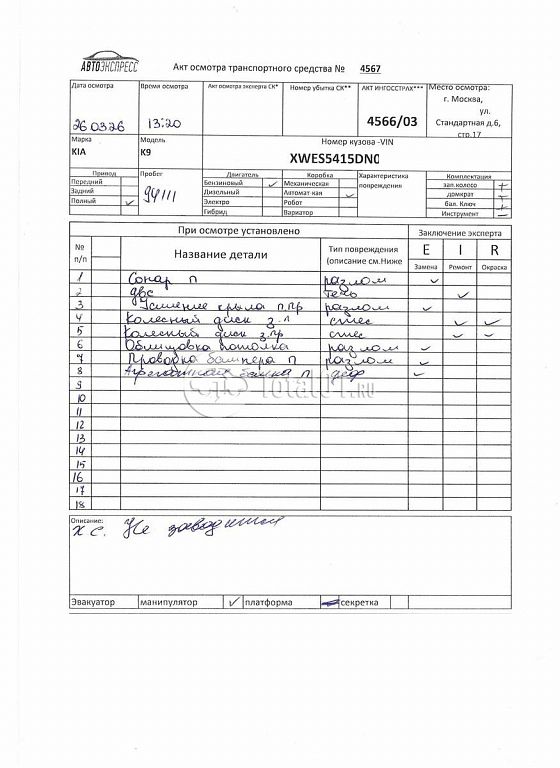 АВТОЭКСПРЕСС
Акт осмотра транспортного средства № 4567
Дата осмотра Время осмотра Акт осмотра эксперта СК* Номер убытка СК** АКТ ИНГОССТРАХ*** Место осмотра:
260326 13:20 4566/03 г. Москва, ул. Стандартная д.6, стр.17
Марка Модель Номер кузова -VIN
KIA K9 XWES5415DN0
Привод Пробег Двигатель Коробка Характеристика повреждения Комплектация
Передний 94111 Бензиновый ✓ Механическая зап.колесо +
Задний Дизельный Автомат кая ✓ домкрат
Полный ✓ Электро Робот бал. Ключ +
Гибрид Вариатор Инструмент
При осмотре установлено Заключение эксперта
№ п/п Название детали Тип повреждения (описание см.Ниже E I R
Замена Ремонт Окраска
1 Сонар п разлом ✓
2 двс течь ✓
3 Усиление крыла п.пр разлом ✓
4 Колесный диск з.л стес ✓ ✓
5 Колесный диск з.пр стес ✓ ✓
6 Облицовка потолка разлом ✓
7 Проводка бампера п разлом ✓
8 балка п деф ✓
9
10
11
12
13
14
15
16
17
18
TOTAL01.RU
Описание:
х с. Не заводится
Эвакуатор манипулятор ✓ платформа секретка